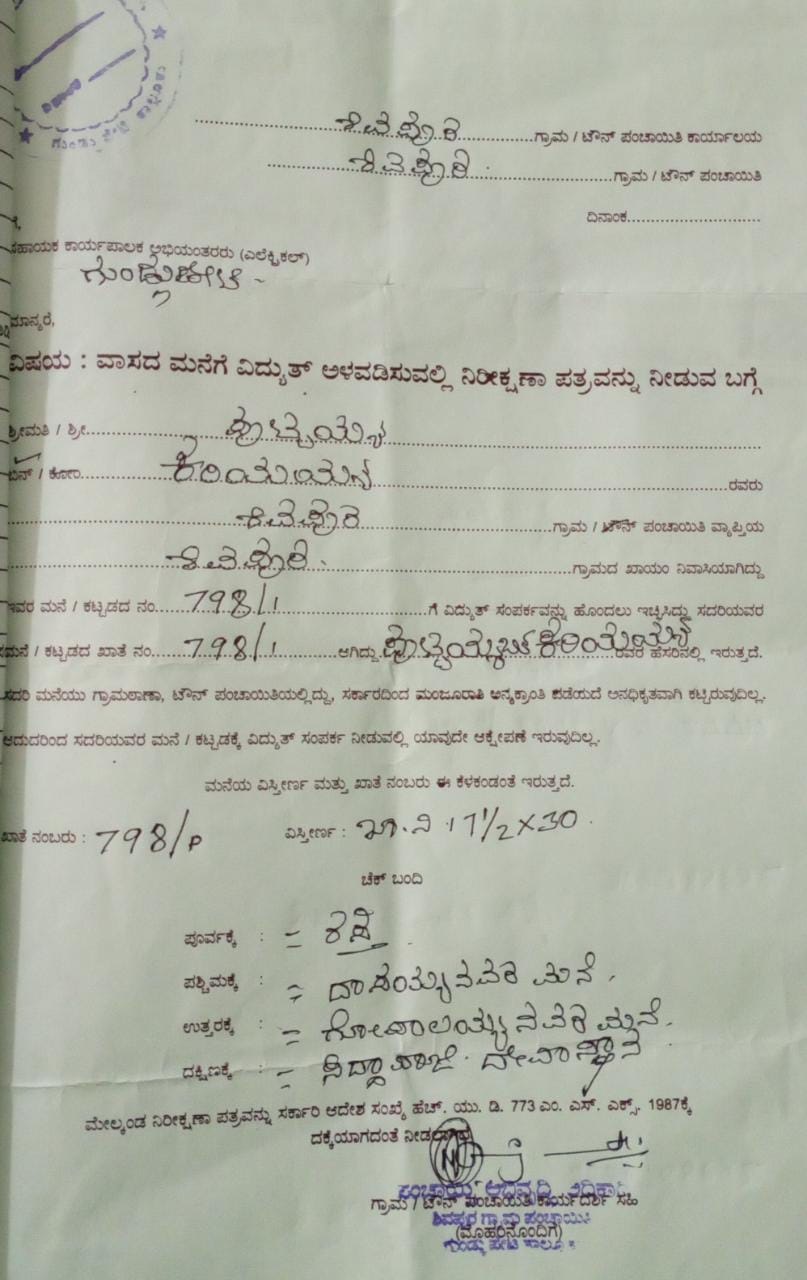 ಶಿವಪುರ ಗ್ರಾಮ / ಟೌನ್ ಪಂಚಾಯಿತಿ ಕಾರ್ಯಾಲಯ
ಶಿವಪುರ ಗ್ರಾಮ / ಟೌನ್ ಪಂಚಾಯಿತಿ
ದಿನಾಂಕ
ಸಹಾಯಕ ಕಾರ್ಯಪಾಲಕ ಅಭಿಯಂತರರು (ಎಲೆಕ್ಟ್ರಿಕಲ್)
ಗುಂಡ್ಲುಪೇಟೆ
ಮಾನ್ಯರೆ,
ವಿಷಯ : ವಾಸದ ಮನೆಗೆ ವಿದ್ಯುತ್ ಅಳವಡಿಸುವಲ್ಲಿ ನಿರೀಕ್ಷಣಾ ಪತ್ರವನ್ನು ನೀಡುವ ಬಗ್ಗೆ
ಶ್ರೀಮತಿ / ಶ್ರೀ ಪುಟ್ಟಯ್ಯ
ಬಿನ್ / ಕೋಂ ಕರಿಯಯ್ಯ ರವರು
ಶಿವಪುರ ಗ್ರಾಮ / ಟೌನ್ ಪಂಚಾಯಿತಿ ವ್ಯಾಪ್ತಿಯ
ಶಿವಪುರ ಗ್ರಾಮದ ಖಾಯಂ ನಿವಾಸಿಯಾಗಿದ್ದು
ಇವರ ಮನೆ / ಕಟ್ಟಡದ ನಂ. 798/1 ಗೆ ವಿದ್ಯುತ್ ಸಂಪರ್ಕವನ್ನು ಹೊಂದಲು ಇಚ್ಛಿಸಿದ್ದು ಸದರಿಯವರ
ಮನೆ / ಕಟ್ಟಡದ ಖಾತೆ ನಂ. 798/1 ಆಗಿದ್ದು ಪುಟ್ಟಯ್ಯ ರವರ ಹೆಸರಿನಲ್ಲಿ ಇರುತ್ತದೆ.
ಸದರಿ ಮನೆಯು ಗ್ರಾಮಠಾಣಾ, ಟೌನ್ ಪಂಚಾಯಿತಿಯಲ್ಲಿದ್ದು, ಸರ್ಕಾರದಿಂದ ಮಂಜೂರಾತಿ ಅನ್ಯಕ್ರಾಂತಿ ಪಡೆಯದೆ ಅನಧಿಕೃತವಾಗಿ ಕಟ್ಟಿರುವುದಿಲ್ಲ.
ಆದುದರಿಂದ ಸದರಿಯವರ ಮನೆ / ಕಟ್ಟಡಕ್ಕೆ ವಿದ್ಯುತ್ ಸಂಪರ್ಕ ನೀಡುವಲ್ಲಿ ಯಾವುದೇ ಆಕ್ಷೇಪಣೆ ಇರುವುದಿಲ್ಲ.
ಮನೆಯ ವಿಸ್ತೀರ್ಣ ಮತ್ತು ಖಾತೆ ನಂಬರು ಈ ಕೆಳಕಂಡಂತೆ ಇರುತ್ತದೆ.
ಖಾತೆ ನಂಬರು : 798/P ವಿಸ್ತೀರ್ಣ : ಖಾ.ನಿ 17 1/2 X 30
ಚೆಕ್ ಬಂದಿ
ಪೂರ್ವಕ್ಕೆ : = ರಸ್ತೆ
ಪಶ್ಚಿಮಕ್ಕೆ : = ದಾಸಯ್ಯನವರ ಮನೆ.
ಉತ್ತರಕ್ಕೆ : = ಗೋಪಾಲಯ್ಯನವರ ಮನೆ.
ದಕ್ಷಿಣಕ್ಕೆ : = ದೇವಾಸ್ಥಾನ
ಮೇಲ್ಕಂಡ ನಿರೀಕ್ಷಣಾ ಪತ್ರವನ್ನು ಸರ್ಕಾರಿ ಆದೇಶ ಸಂಖ್ಯೆ ಹೆಚ್. ಯು. ಡಿ. 773 ಎಂ. ಎಸ್. ಎಕ್ಸ್. 1987ಕ್ಕೆ
ದಕ್ಕೆಯಾಗದಂತೆ
ಗ್ರಾಮ / ಟೌನ್ ಪಂಚಾಯಿತಿ ಕಾರ್ಯದರ್ಶಿ ಸಹಿ
ಶಿವಪುರ ಗ್ರಾಮ ಪಂಚಾಯಿತಿ
(ಮೊಹರಿನೊಂದಿಗೆ)